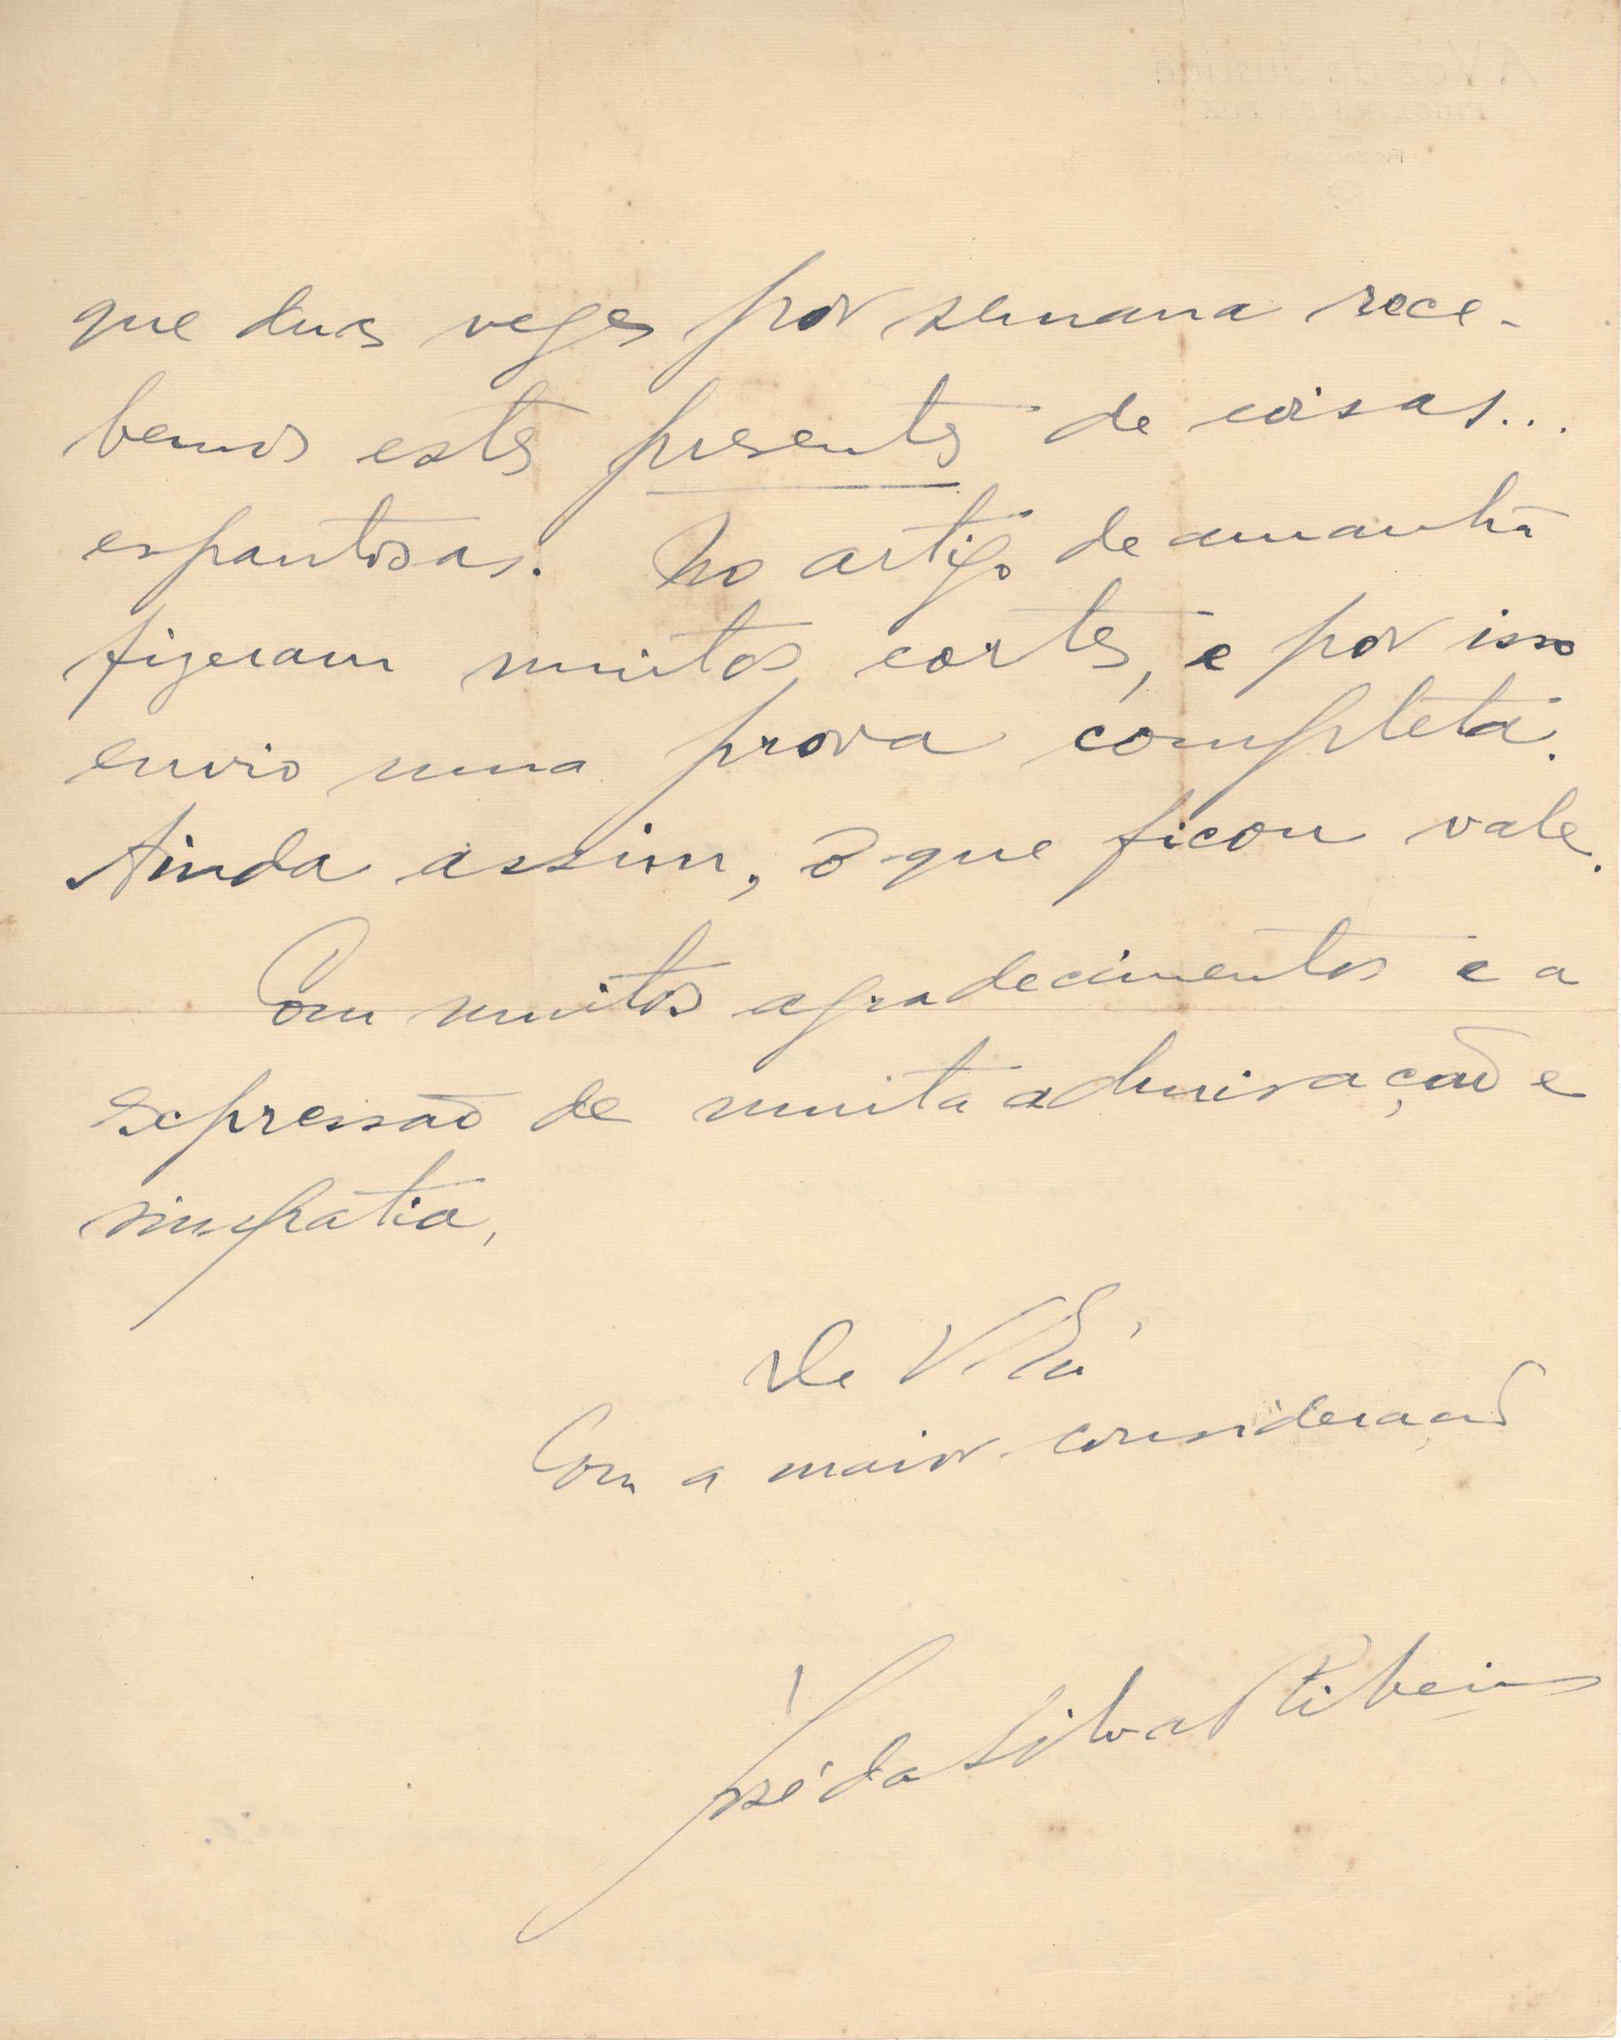 que duas vezes por semana rece-
bemos estes presentes de coisas...
espantosas. No artigo de amanhã
fizeram muitos cortes, e por isso
envio uma prova completa.
Ainda assim, o que ficou vale.
Com muitos agradecimentos e a
expressão de muita admiração e
simpatia,
De V. Ex.ª
Com a maior consideração
José da Silva Ribeiro